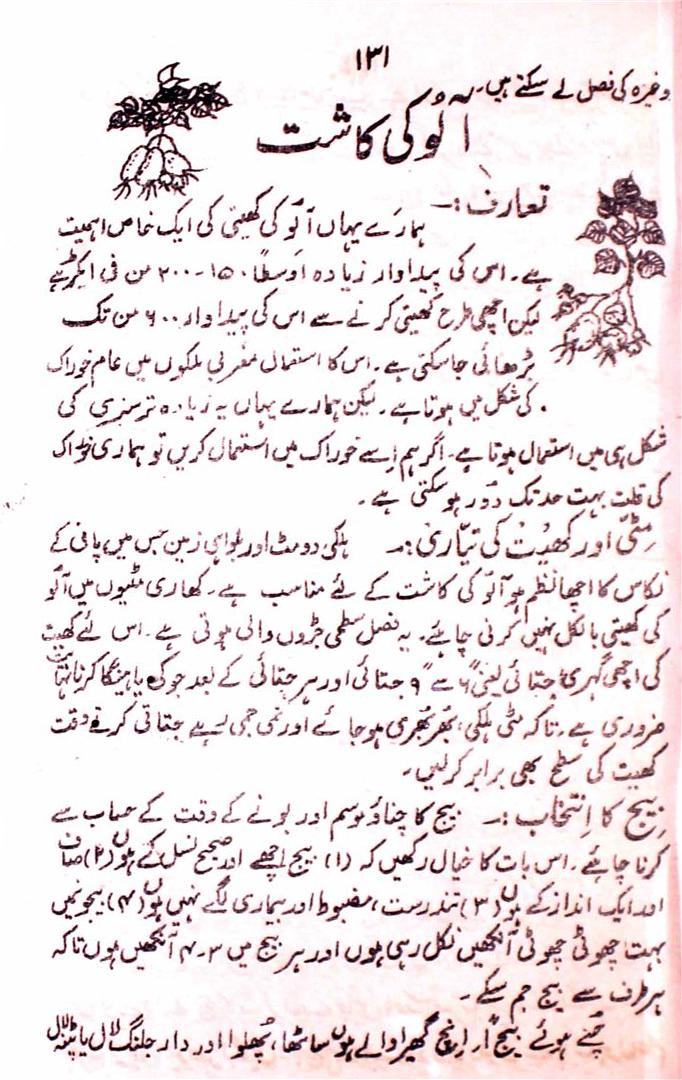 ۱۳۱
وغیرہ کی فصل لے سکتے ہیں۔
آلوُ کی کاشت
تعارف :۔
ہمارے یہاں آلوُ کی کھیتی کی ایک خاص اہمیت
ہے۔ اس کی پیداوار زیادہ اوسطاً ۱۵۰۔۲۰۰ من فی ایکڑ ہے
لیکن اچھی طرح کھیتی کرنے سے اس کی پیداوار ۶۰۰ من تک
بڑھائی جاسکتی ہے۔ اس کا استعمال مغربی ملکوں میں عام خوراک
کی شکل میں ہوتا ہے۔ لیکن ہمارے یہاں یہ زیادہ تر سبزی کی
شکل ہی میں استعمال ہوتا ہے۔ اگر ہم اِسے خوراک میں استعمال کریں تو ہماری خوراک
کی قلت بہت حد تک دُور ہوسکتی ہے۔
مِٹّی اور کھیت کی تیّاری :۔ ہلکی دومٹ اور بلواہی زمین جس میں پانی کے
نکاس کا اچھا نظم ہو آلوُ کی کاشت کے لئے مناسب ہے۔ کھاری مٹیوں میں آلوُ
کی کھیتی بالکل نہیں کرنی چاہئے۔ یہ فصل سطحی جڑوں والی ہوتی ہے۔ اس لئے کھیت
کی اچھی گہری جتائی یعنی ۶" سے ۹" جتائی اور ہر جتائی کے بعد چوکی یا ہینگا کرنا نہایت
ضروری ہے۔ تاکہ مٹی ہلکی، بھُربھُری ہوجائے اور نمی جمی رہے جتائی کرتے وقت
کھیت کی سطح بھی برابر کرلیں۔
بِیج کا اِنتخاب :۔ بیج کا چناؤ موسم اور بونے کے وقت کے حساب سے
کرنا چاہئے۔ اس بات کا خیال رکھیں کہ (۱) بیج اچھے اور صحیح نسل کے ہوں (۲) صاف
اور ایک انداز کے ہوں (۳) تندرست، مضبوط اور بیماری لگے نہیں ہوں (۴) بیجو نمیں
بہت چھوٹی چھوٹی آنکھیں نکل رہی ہوں اور ہر بیج میں ۳۔۴ آنکھیں ہوں تاکہ
ہر طرف سے بیج جم سکے۔
چُنے ہوئے بیج انچ گھیرا والے ہوں ساٹھا، پھُلوا اور دارجلنگ لال یا پٹنہ لال